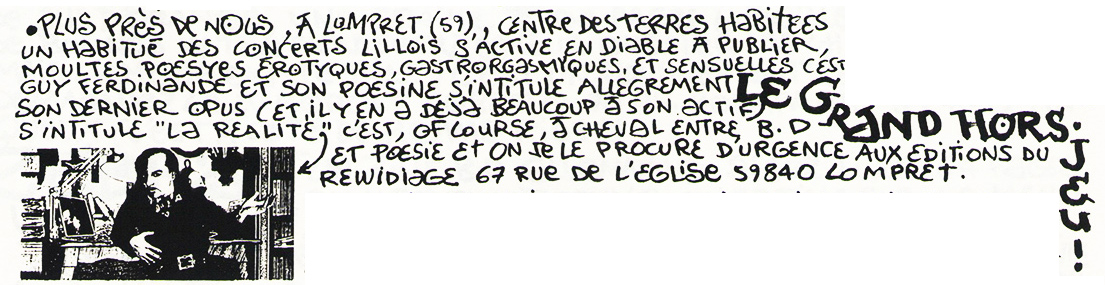 •PLUS PRÈS DE NOUS, À LOMPRET (59), CENTRE DES TERRES HABITEES
UN HABITUÉ DES CONCERTS LILLOIS S'ACTIVE EN DIABLE À PUBLIER,
MOULTES POESYES EROTYQUES, GASTRORGASMIQUES, ET SENSUELLES C'EST
GUY FERDINANDE ET SON POESINE S'INTITULE ALLEGREMENT LE GRAND HORS-JEU!
SON DERNIER OPUS (ET, IL Y EN A DEJA BEAUCOUP À SON ACTIF)
S'INTITULE "LA REALITE", C'EST, OF COURSE, À CHEVAL ENTRE B.D
ET POESIE ET ON SE LE PROCURE D'URGENCE AUX EDITIONS DU
REWIDIAGE 67 RUE DE L'EGLISE 59840 LOMPRET.